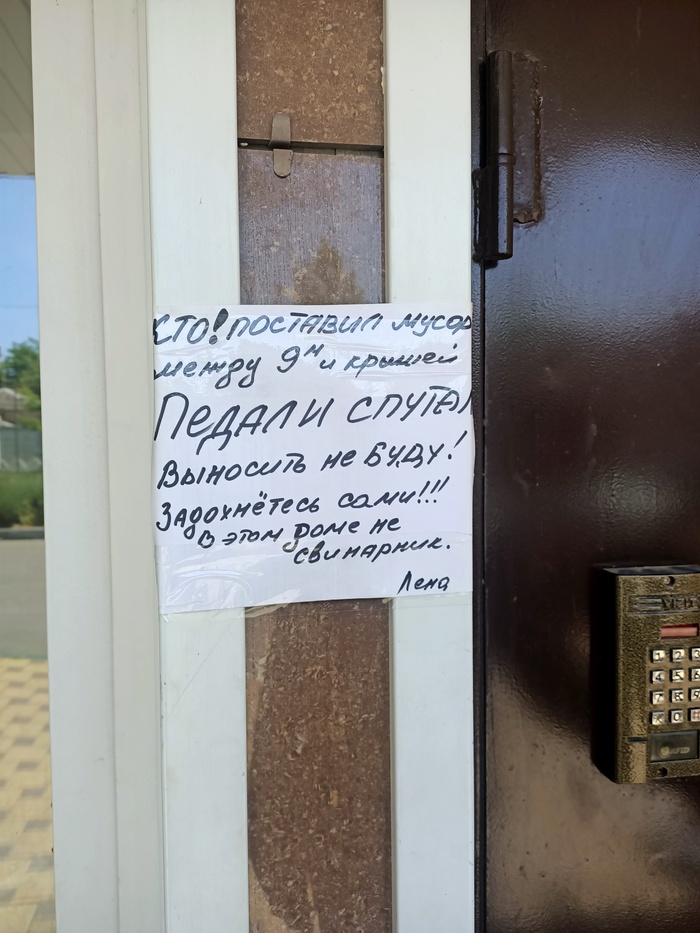 КТО! ПОСТАВИЛ МУСОР
между 9м и крышей
ПЕДАЛИ СПУТАЛ
Выносить не БУДУ!
Задохнётесь сами!!!
в этом доме не
свинарник.
Лена
1 2 3
4 5 6
7 8 9